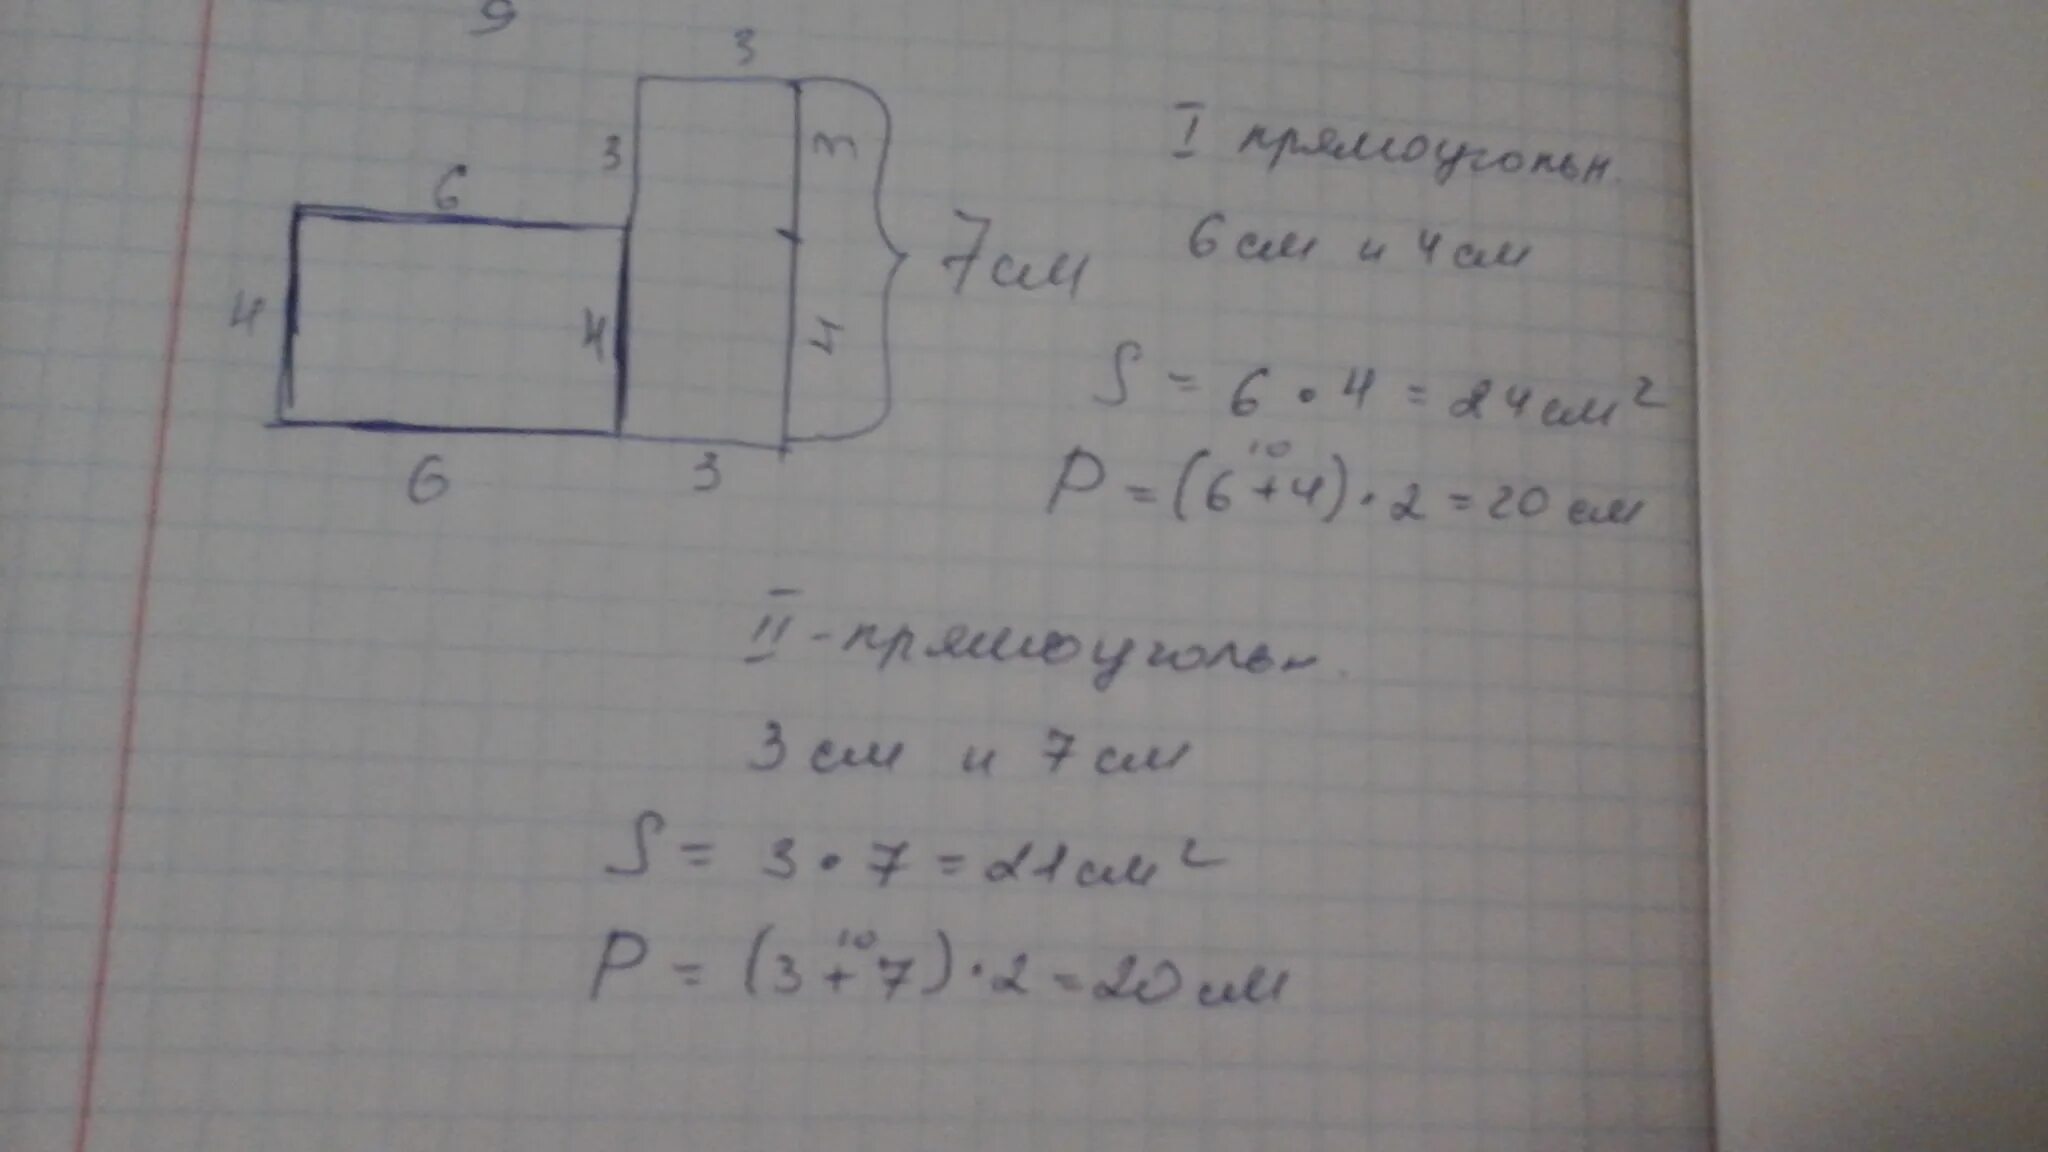 9
3
3
3
6
4
4
4
7см
6
3
I прямоугольн.
6 см и 4 см
S = 6 • 4 = 24 см²
10
P = (6 + 4) • 2 = 20 см
II - прямоугольн.
3 см и 7 см
S = 3 • 7 = 21 см²
10
P = (3 + 7) • 2 = 20 см